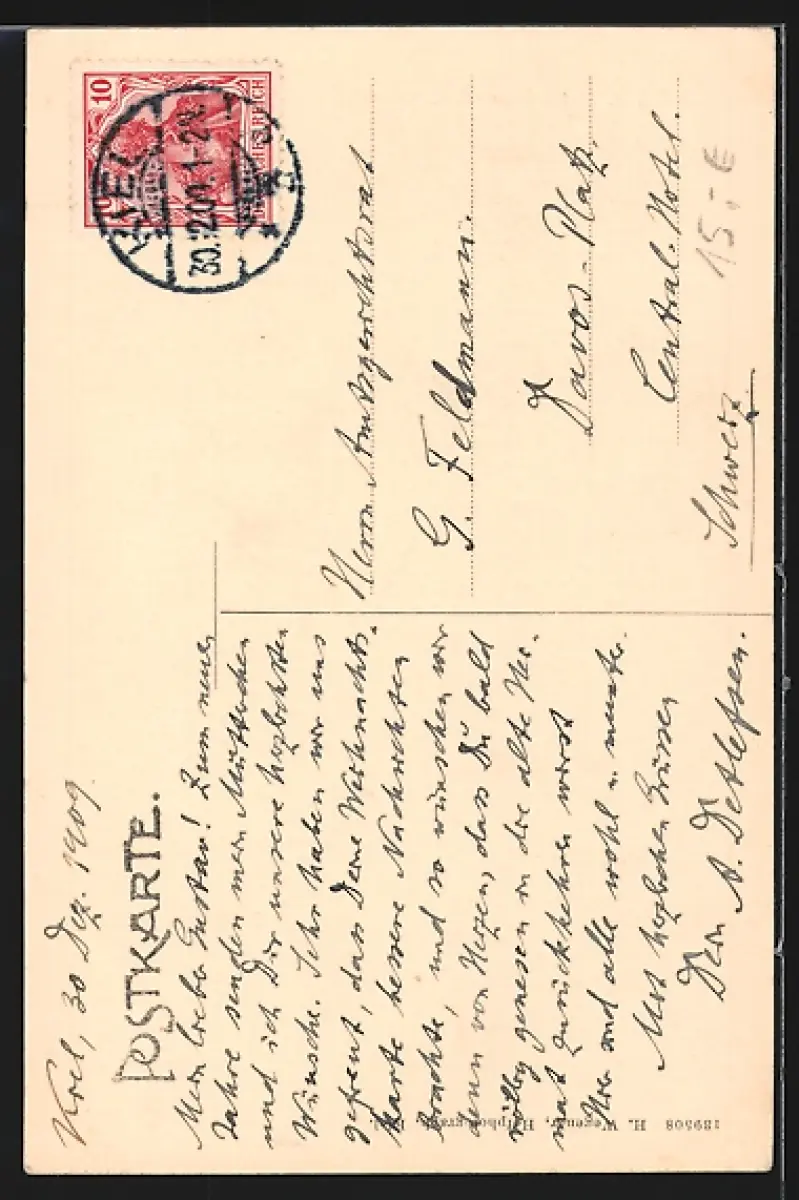 Kiel, 30 Dez. 1909.
POSTKARTE.
Mein lieber Gustav! Zum neuen
Jahre senden mein Mütterchen
und ich Dir unsere herzlichsten
Wünsche. Sehr haben wir uns
gefreut, dass Deine Weihnachts-
karte bessere Nachrichten
brachte, und so wünschen wir
denn von Herzen, dass Du bald
völlig genesen in die alte Hei-
mat zurückkehren wirst.
Hier sind alle wohl u. munter.
Mit herzlichen Grüssen
Dein A. Detlefsen.
10
DEUTSCHES REICH
KIEL
30.12.09. 1-2N.
Herrn Amtsgerichtsrat
G. Feldmann.
Davos-Platz.
Central-Hotel.
Schweiz
15,-€
189508 H. Wegener,